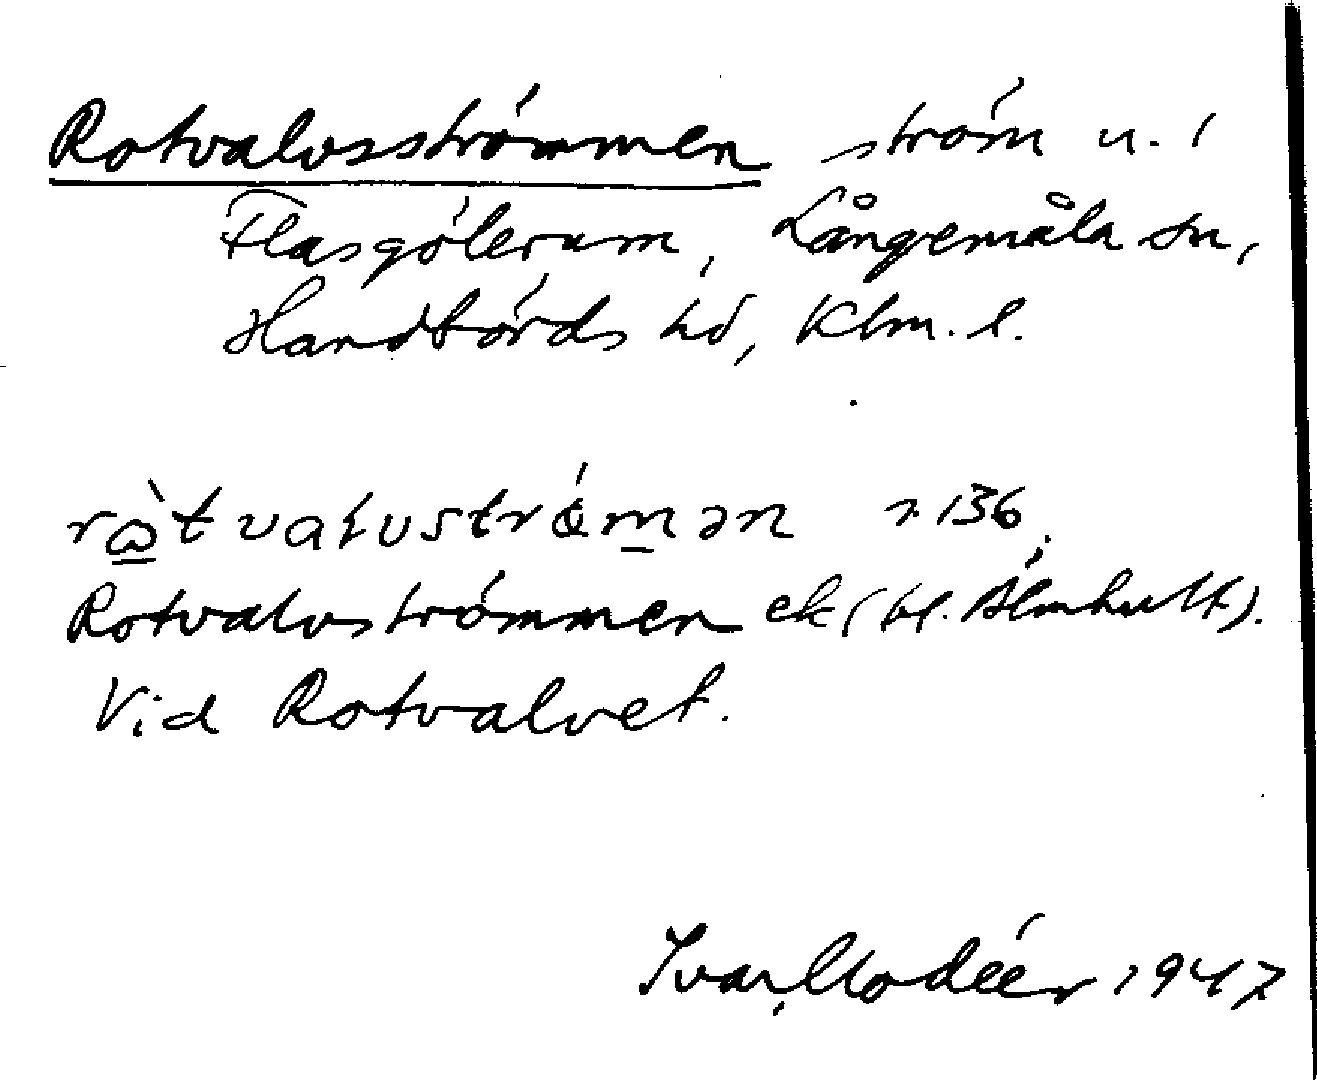 Rotvalvsströmmen ström n. i
Flasgölerum, Långemåla sn,
Handbörds hd, Klm. l.
rⱺ̀tvaɫvströ́mən r. 136.
Rotvalvströmmen ek (bl. Älmhult).
Vid Rotvalvet.
Ivar Modéer 1947